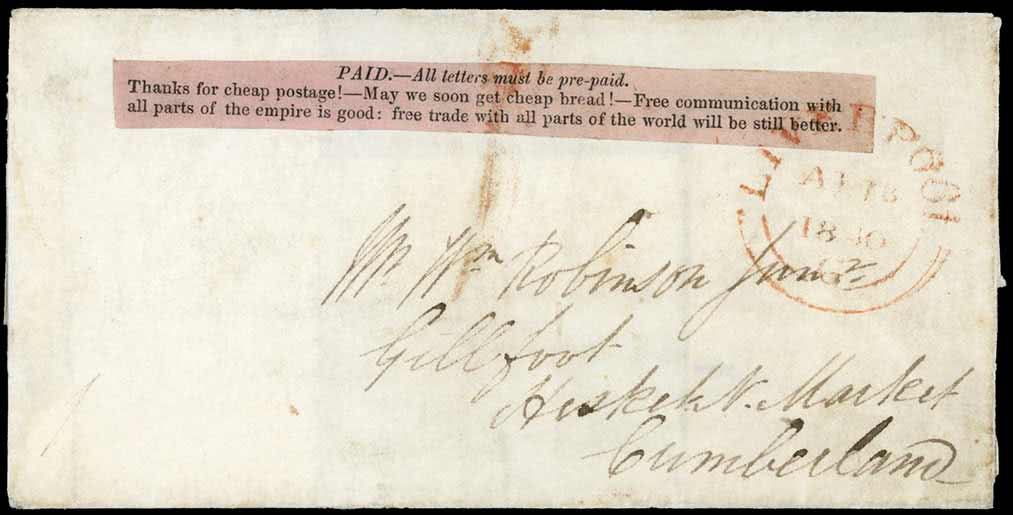 PAID.—All letters must be pre-paid.
Thanks for cheap postage!—May we soon get cheap bread!—Free communication with
all parts of the empire is good: free trade with all parts of the world will be still better.
LIVERPOOL
AP 18
1840
Mr Wm Robinson Junr
Gillfoot
Hesket N. Market
Cumberland